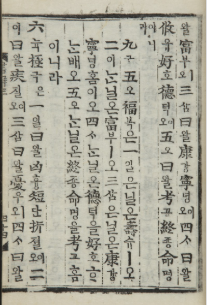 왈富부ㅣ오三삼曰왈康강寧녕이오四ᄉᆞ曰왈
攸유好호德덕이오五오曰왈考고終죵命명
이니라
九구五오福복은一일은닐온壽슈ㅣ오
二이ᄂᆞᆫ닐온富부ㅣ오三삼은닐온康강
寧녕홈이오四ᄉᆞᄂᆞᆫ닐온德덕을好호ᄒᆞ
ᄂᆞᆫ배오五오ᄂᆞᆫ닐온終죵命명을考고홈
이니라
六륙極극은一일曰왈凶흉短단折졀이오二
이曰왈疾질이오三삼曰왈憂우ㅣ오四ᄉᆞ曰왈